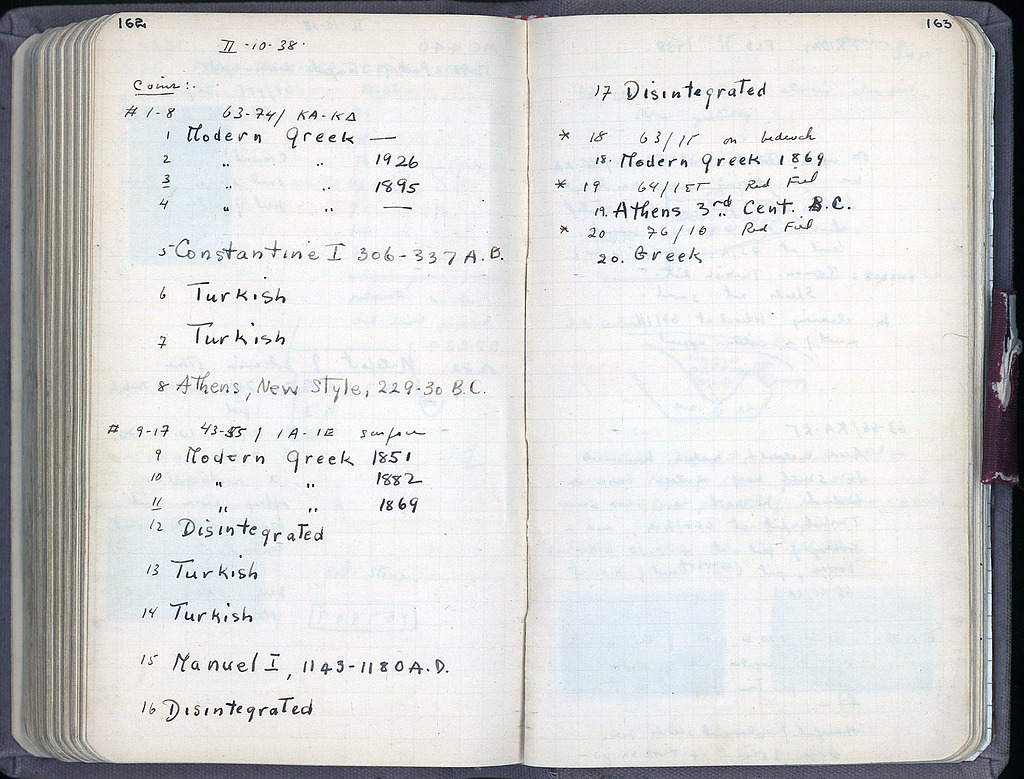 162
II-10-38.
Coins:.
# 1-8 63-74/ KA-KΔ
1 Modern Greek —
2 " " 1926
3 " " 1895
4 " " —
5 Constantine I 306-337 A.D.
6 Turkish
7 Turkish
8 Athens, New Style, 229-30 B.C.
# 9-17 43-55 / IA-IE surface
9 Modern Greek 1851
10 " " 1882
11 " " 1869
12 Disintegrated
13 Turkish
14 Turkish
15 Manuel I, 1143-1180 A.D.
16 Disintegrated
163
17 Disintegrated
* 18 63/ΙΣΤ on bedrock
18. Modern Greek 1869
* 19 64/ΙΣΤ Red Fill
19. Athens 3rd Cent. B.C.
* 20 76/16 Red Fill
20. Greek